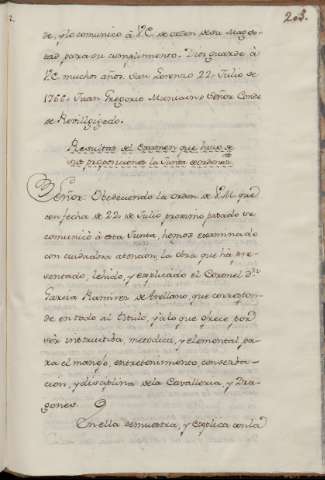 203.
de, y lo comunico à V.E. de orden de su Mages-
tad para su cumplimiento. Dios guarde à
V.E. muchos años. San Lorenzo 22,, Julio de
1766,, Juan Gregorio Muniain,, Señor Conde
de Revillagigedo.
Resultas del Examen que hizo de
las proposiciones la Junta de ordenzas
Señor. Obedeciendo la orden de V.M. que
con fecha de 22,, de Julio proximo pasado se
comunicó à esta Junta, hemos examinado
con cuidadosa atencion, la obra que há pre-
sentado, lehido, y explicado el Coronel dn.
Garcia Ramirez de Arellano, que correspon-
de en todo al titulo, y à lo que ofrece por
ser instructiva metodica, y elemental, pa-
ra el manejo, entretenimiento, conserba-
cion, y disciplina de la Cavalleria, y Dra-
gones.
En ella demuestra, y explica con la